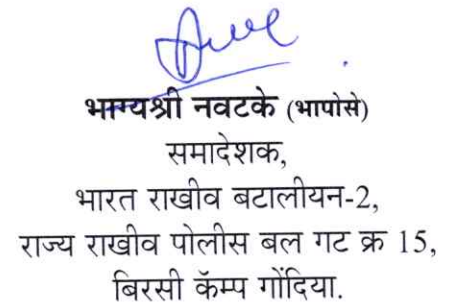 भाग्यश्री नवटके (भापोसे)
समादेशक,
भारत राखीव बटालीयन-2,
राज्य राखीव पोलीस बल गट क्र 15,
बिरसी कॅम्प गोंदिया.